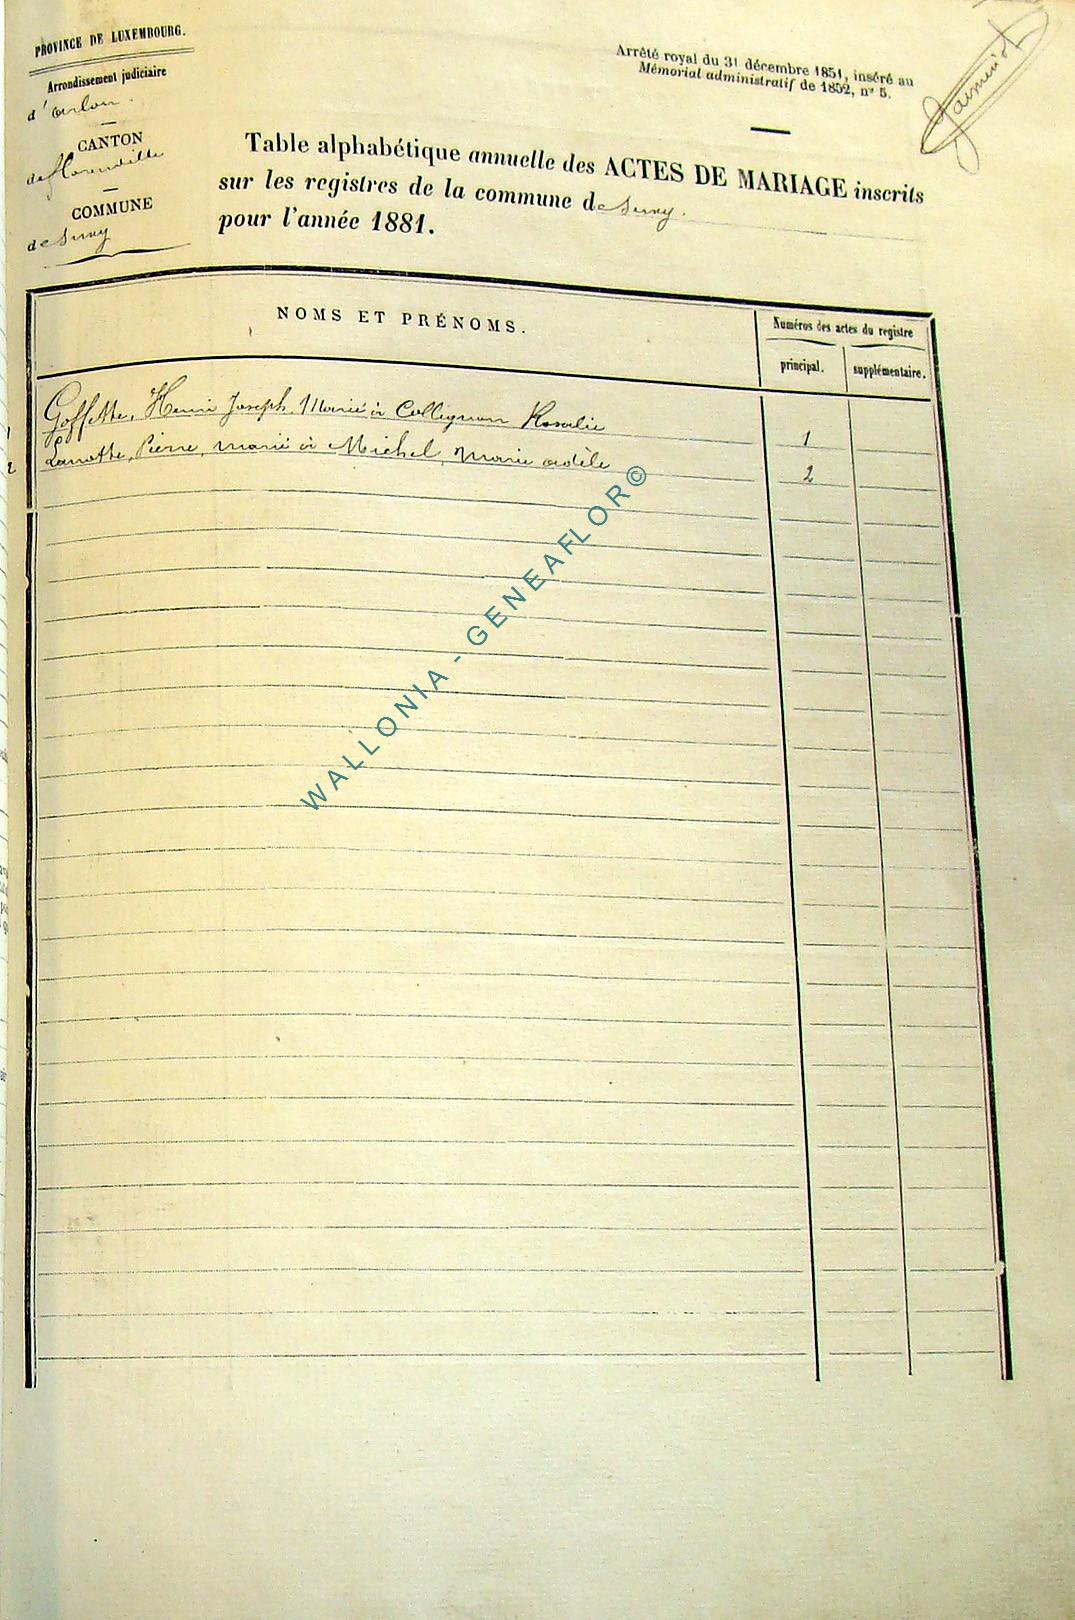 PROVINCE DE LUXEMBOURG.
Arrondissement judiciaire
d'arlon.
CANTON
de florenville
COMMUNE
de Suxy
Arrêté royal du 31 décembre 1851, inséré au
Mémorial administratif de 1852, n° 5.
Table alphabétique annuelle des ACTES DE MARIAGE inscrits
sur les registres de la commune de Suxy.
pour l'année 1881.
NOMS ET PRÉNOMS.
Numéros des actes du registre
principal.
supplémentaire.
1 Goffette, Henri Joseph, Marié à Collignon Rosalie 1
2 Lamotte, Pierre, marié à Michel, Marie adèle 2
WALLONIA - GENEAFLOR©